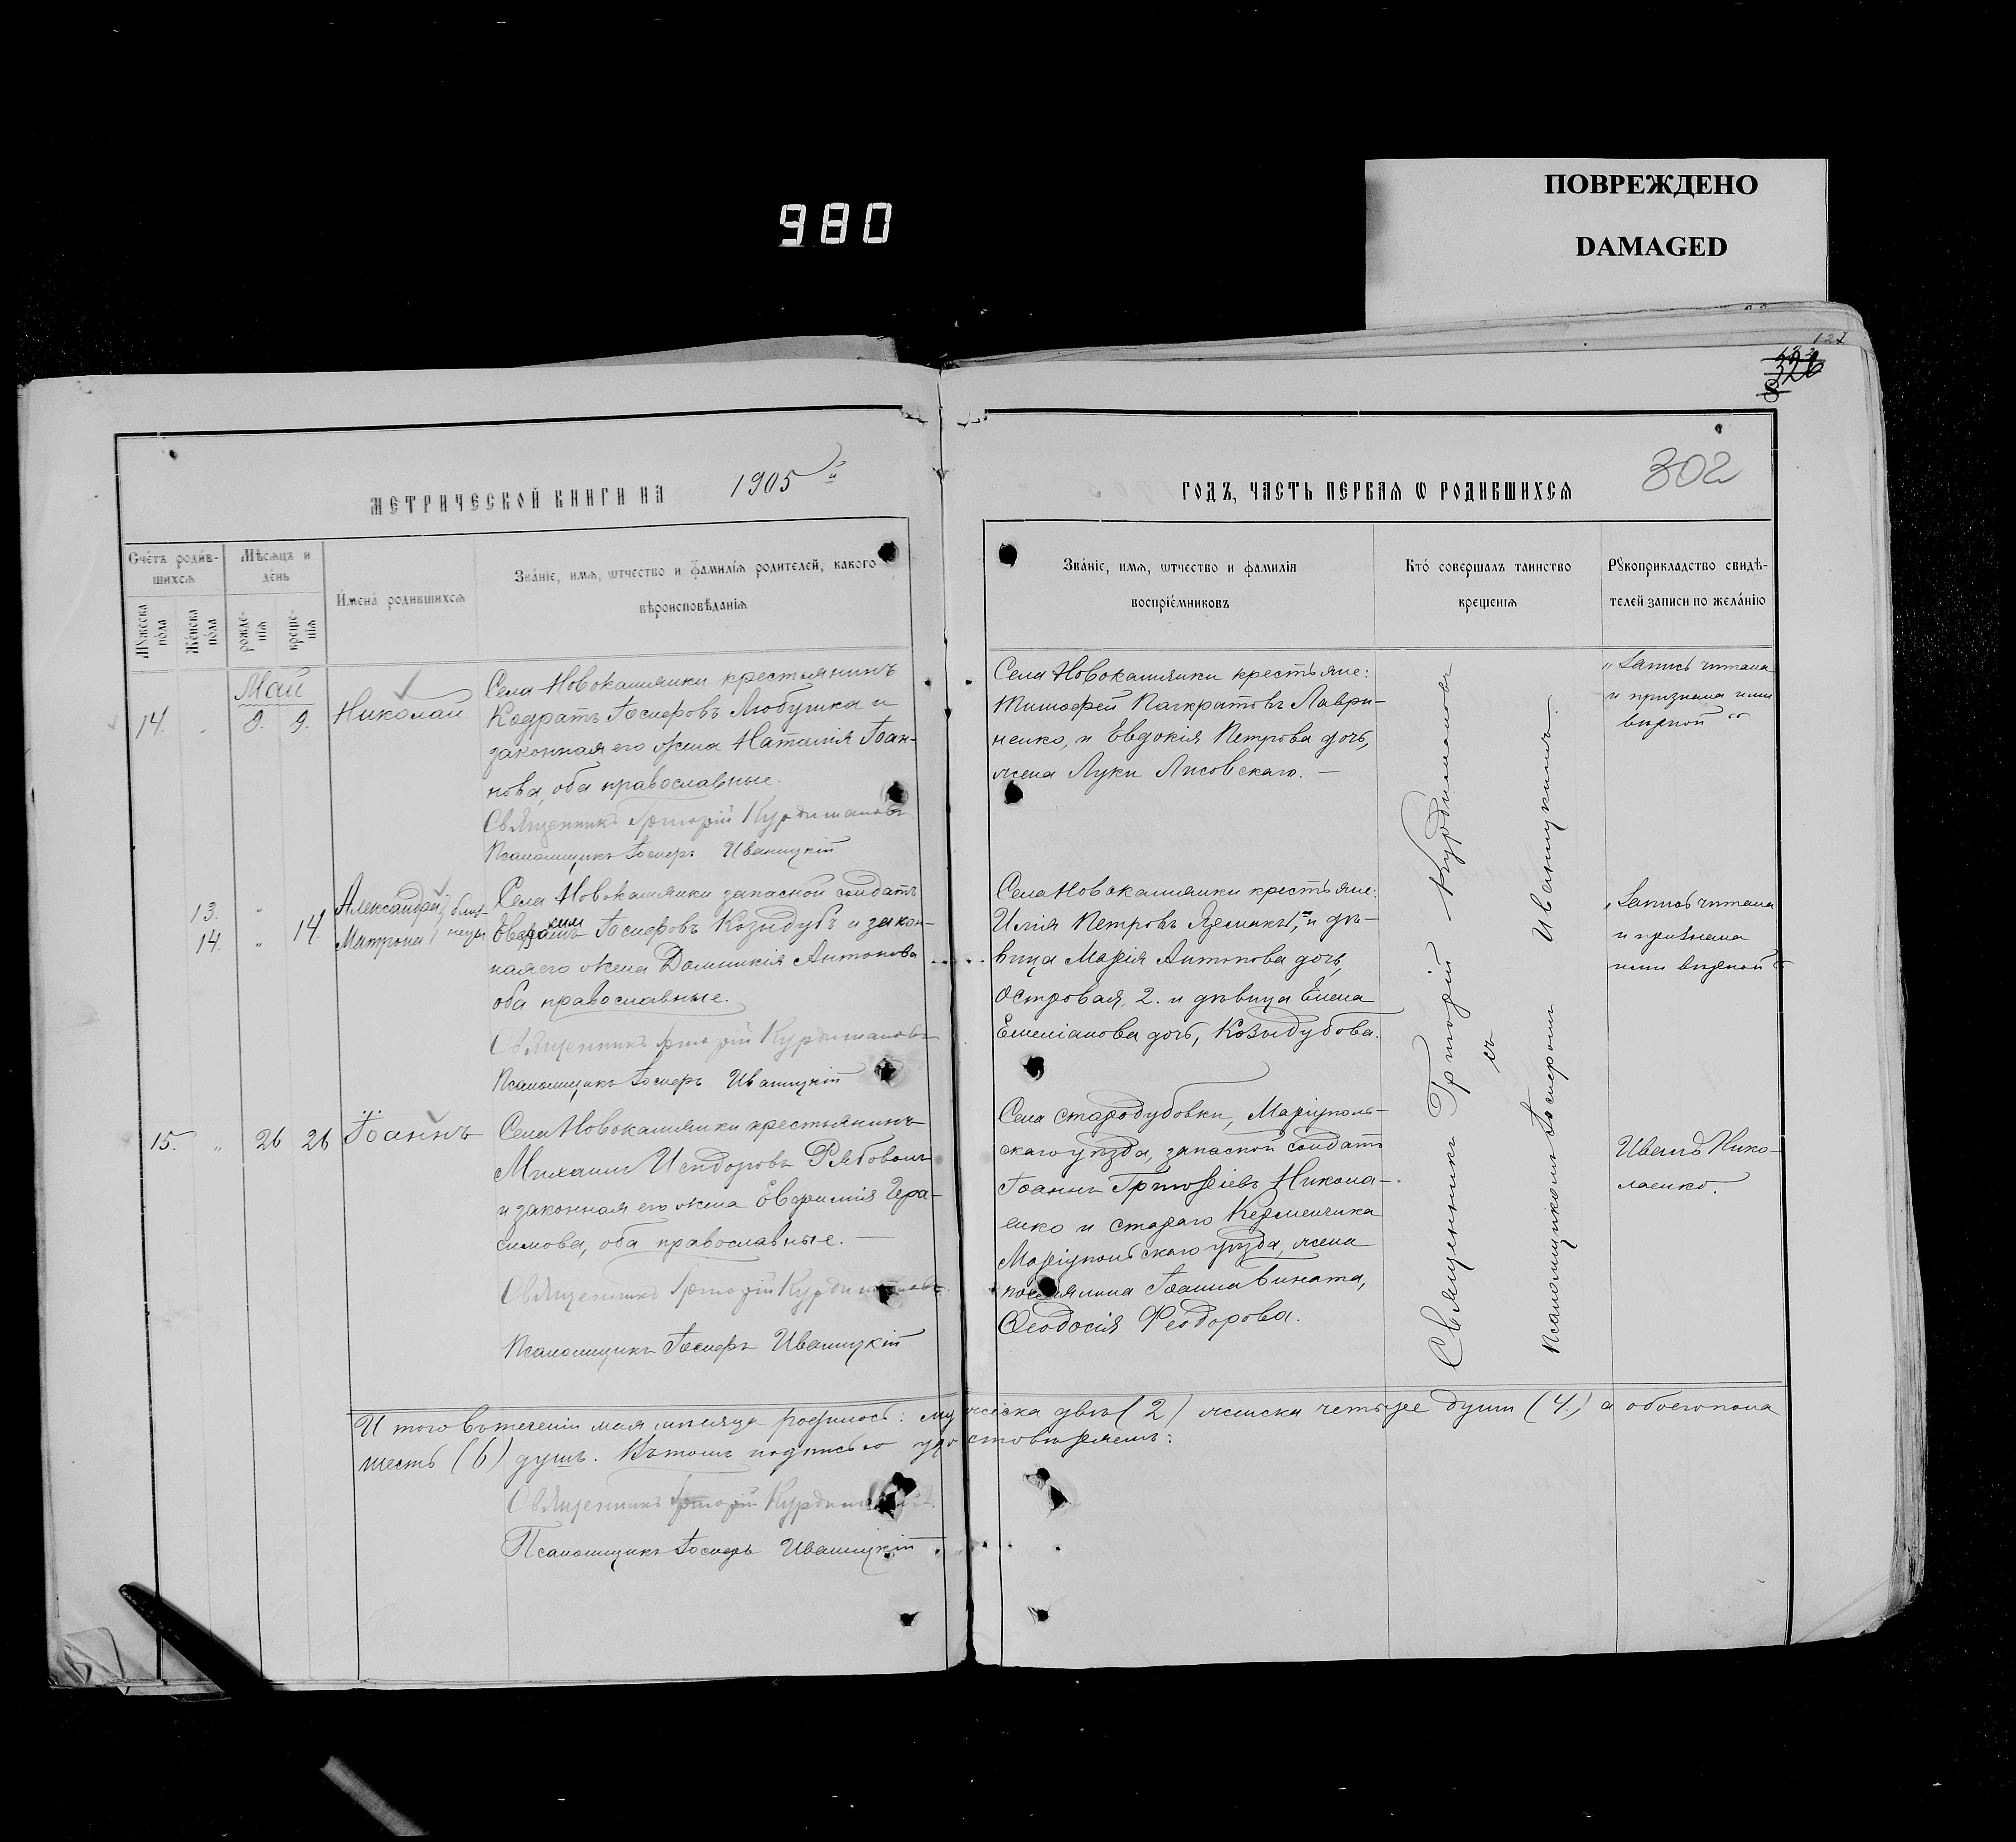 980
ПОВРЕЖДЕНО
DAMAGED
302
МЕТРИЧЕСКОЙ КНИГИ НА 1905й
ГОДЪ, ЧАСТЬ ПЕРВАЯ Ѡ РОДИВШИХСЯ
Счетъ родившихся
Мужеска пола
Женска пола
Мѣсяцъ и день
рожденія
крещенія
Имена родившихся
Званіе, имя, ѿчество и фамилія родителей, какого
вѣроисповѣданія
Званіе, имя, ѿчество и фамилія
воспріемниковъ
Кто совершалъ таинство
крещенія
Рукоприкладство свидѣ-
телей записи по желанію
Май
14. 9. 9. Николай
Села Новокашмянки крестьянинъ
Кодратъ Іосифовъ Любушка и
законная его жена Наталія Іоан-
нова, оба православные.
Священникъ Григорій Курдимановъ
Псаломщикъ Іосифъ Иваницкій
Села Новокашмянки крестьяне:
Тимофей Панкратовъ Лаври-
ненко, и Евдокія Петрова дочь,
жена Луки Лисовскаго. —
„Запись читана
и признана ими
вѣрной“
13. „
14. „ 14.
Александра
Матрона
близ-
нецы
Села Новокашмянки запасной солдатъ
Іосифовъ Козыдубъ и закон-
ная его жена Домникія Антонова
оба православные.
Священникъ Григорій Курдимановъ
Псаломщикъ Іосифъ Иваницкій
Села Новокашмянки крестьяне:
Илія Петровъ и дѣ-
вица Марія Антонова дочь,
Островая, 2. и дѣвица Елена
Емеліанова дочь, Козыдубова.
„Запись читана
и признана
ими вѣрной“
15. „ 26 26 Іоаннъ
Села Новокашмянки крестьянинъ
Михаилъ Исидоровъ Рябоволъ
и законная его жена Евфимія Гера-
симова, оба православные. —
Священникъ Григорій Курдимановъ
Псаломщикъ Іосифъ Иваницкій
Села Стародубовки, Маріуполь-
скаго уѣзда, запасной солдатъ
Іоаннъ Григоріевъ Никола-
енко и стараго Керменчика
Маріупольскаго уѣзда, жена
поселянина Іоанна Бината,
Ѳеодосія Феодорова.
Иванъ Нико-
лаенко.
Священникъ Григорій Курдимановъ
съ
Псаломщикомъ Іосифомъ Иваницкимъ.
Итого въ теченіи мая мѣсяца родилось: мужеска двѣ (2) женска четыре души (4.) а обоего пола
шесть (6) душъ. Въ томъ подписью удостовѣряемъ:
Священникъ Григорій
Псаломщикъ Іосифъ Иваницкій